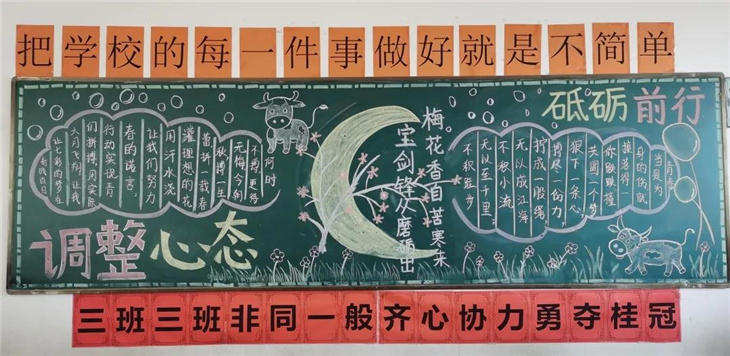 把学校的每一件事做好就是不简单
砥砺前行
调整心态
宝剑锋从磨砺出
梅花香自苦寒来
何时
不搏更待
无悔今朝
秋搏一生
蕾拼一载春
灌理想的花
用汗水浇
让我们努力
春的诺言，
行动实现青
们拼搏用实际
大刀飞翔，让我
身的伤驭
撞善得
你敢碰撞
共圆一个梦
狠下一条心，
搏尽一份力，
拧成一股绳
无以成江海
不积小流
无以至千里，
不积跬步
三班三班非同一般齐心协力勇夺桂冠